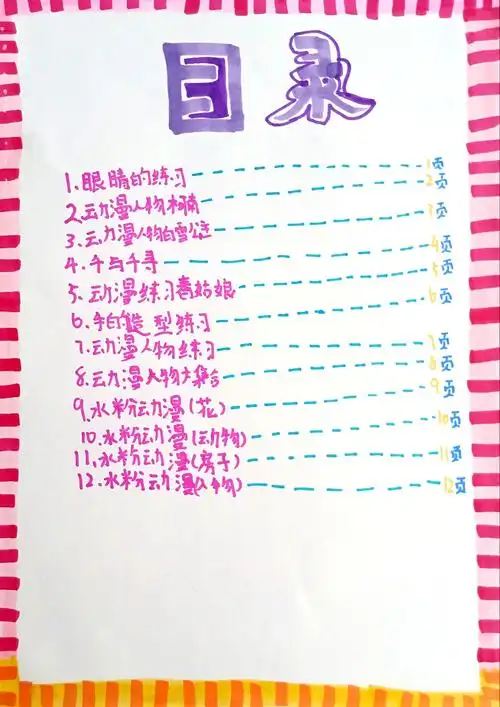 目录
1.眼睛的练习 1页
2.动漫人物柯南 2页
3.动漫人物白雪公主 3页
4.千与千寻 4页
5.动漫练习春姑娘 5页
6.手的造型练习 6页
7.动漫人物练习 7页
8.动漫人物大集合 8页
9.水粉动漫(花) 9页
10.水粉动漫(动物) 10页
11.水粉动漫(房子) 11页
12.水粉动漫(人物) 12页